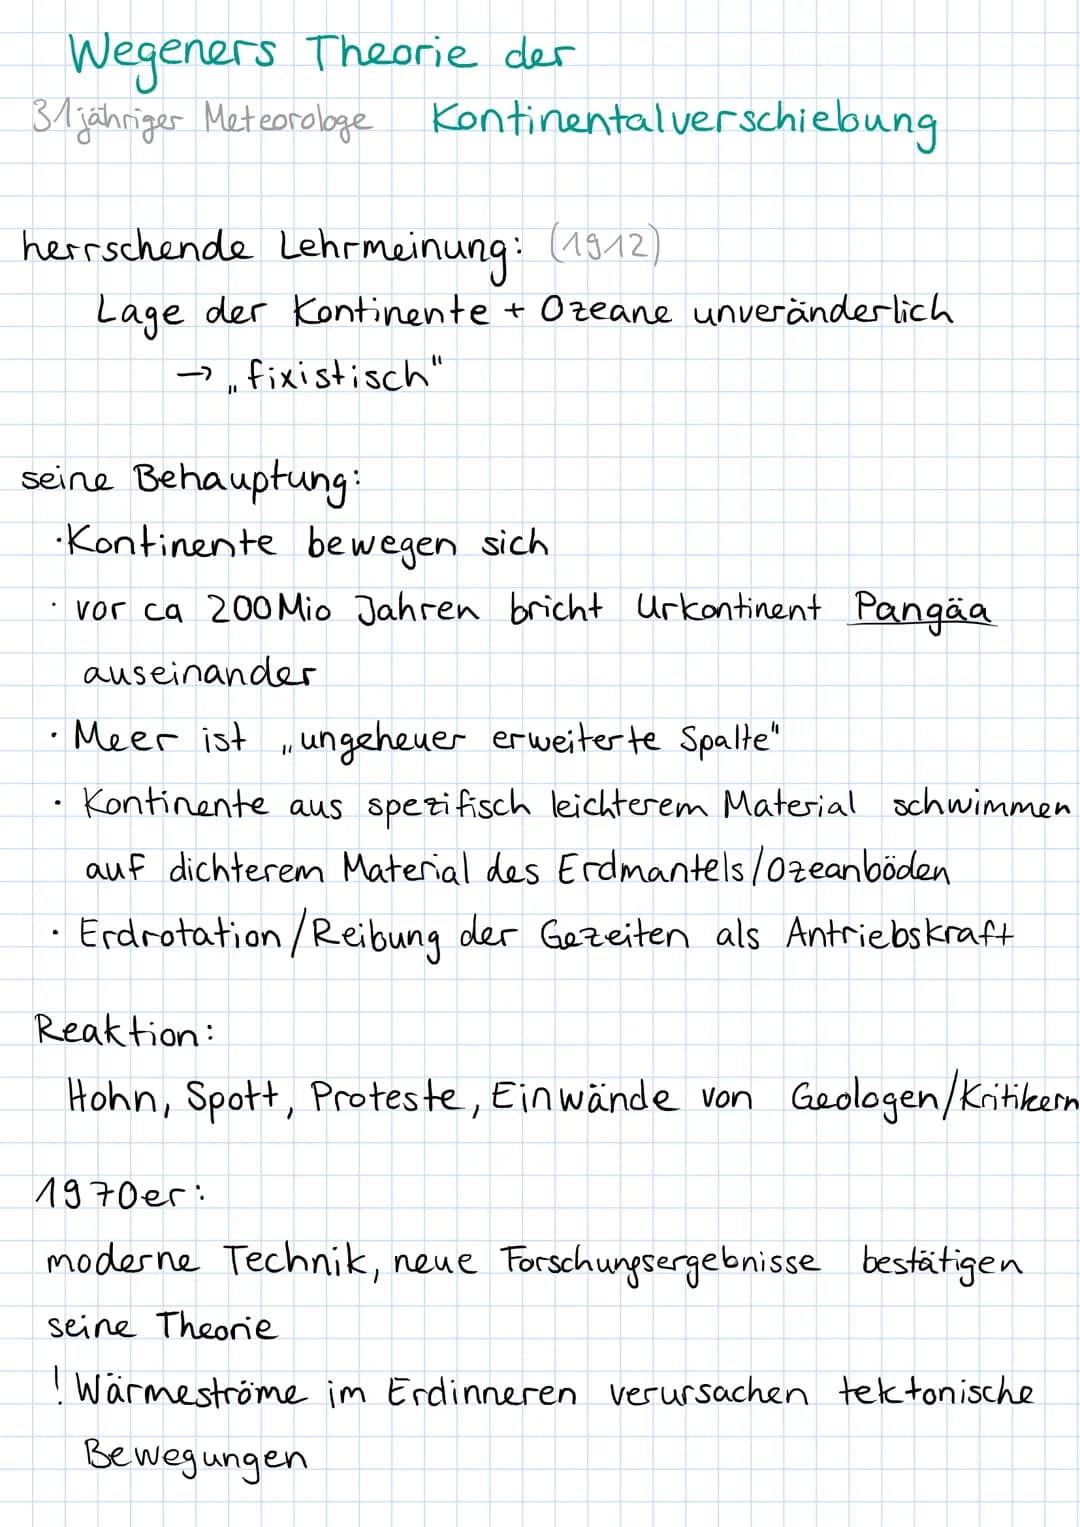 Wegeners Theorie der
31jähriger Meteorologe Kontinentalverschiebung
herrschende Lehrmeinung: (1912)
Lage der Kontinente + Ozeane unveränderlich
→ „fixistisch"
seine Behauptung:
·Kontinente bewegen sich
· vor ca 200Mio Jahren bricht Urkontinent Pangäa
auseinander
· Meer ist „ungeheuer erweiterte Spalte"
· Kontinente aus spezifisch leichterem Material schwimmen
auf dichterem Material des Erdmantels/Ozeanböden
· Erdrotation/Reibung der Gezeiten als Antriebskraft
Reaktion:
Hohn, Spott, Proteste, Einwände von Geologen/Kritikern
1970er:
moderne Technik, neue Forschungsergebnisse bestätigen
seine Theorie
! Wärmeströme im Erdinneren verursachen tektonische
Bewegungen